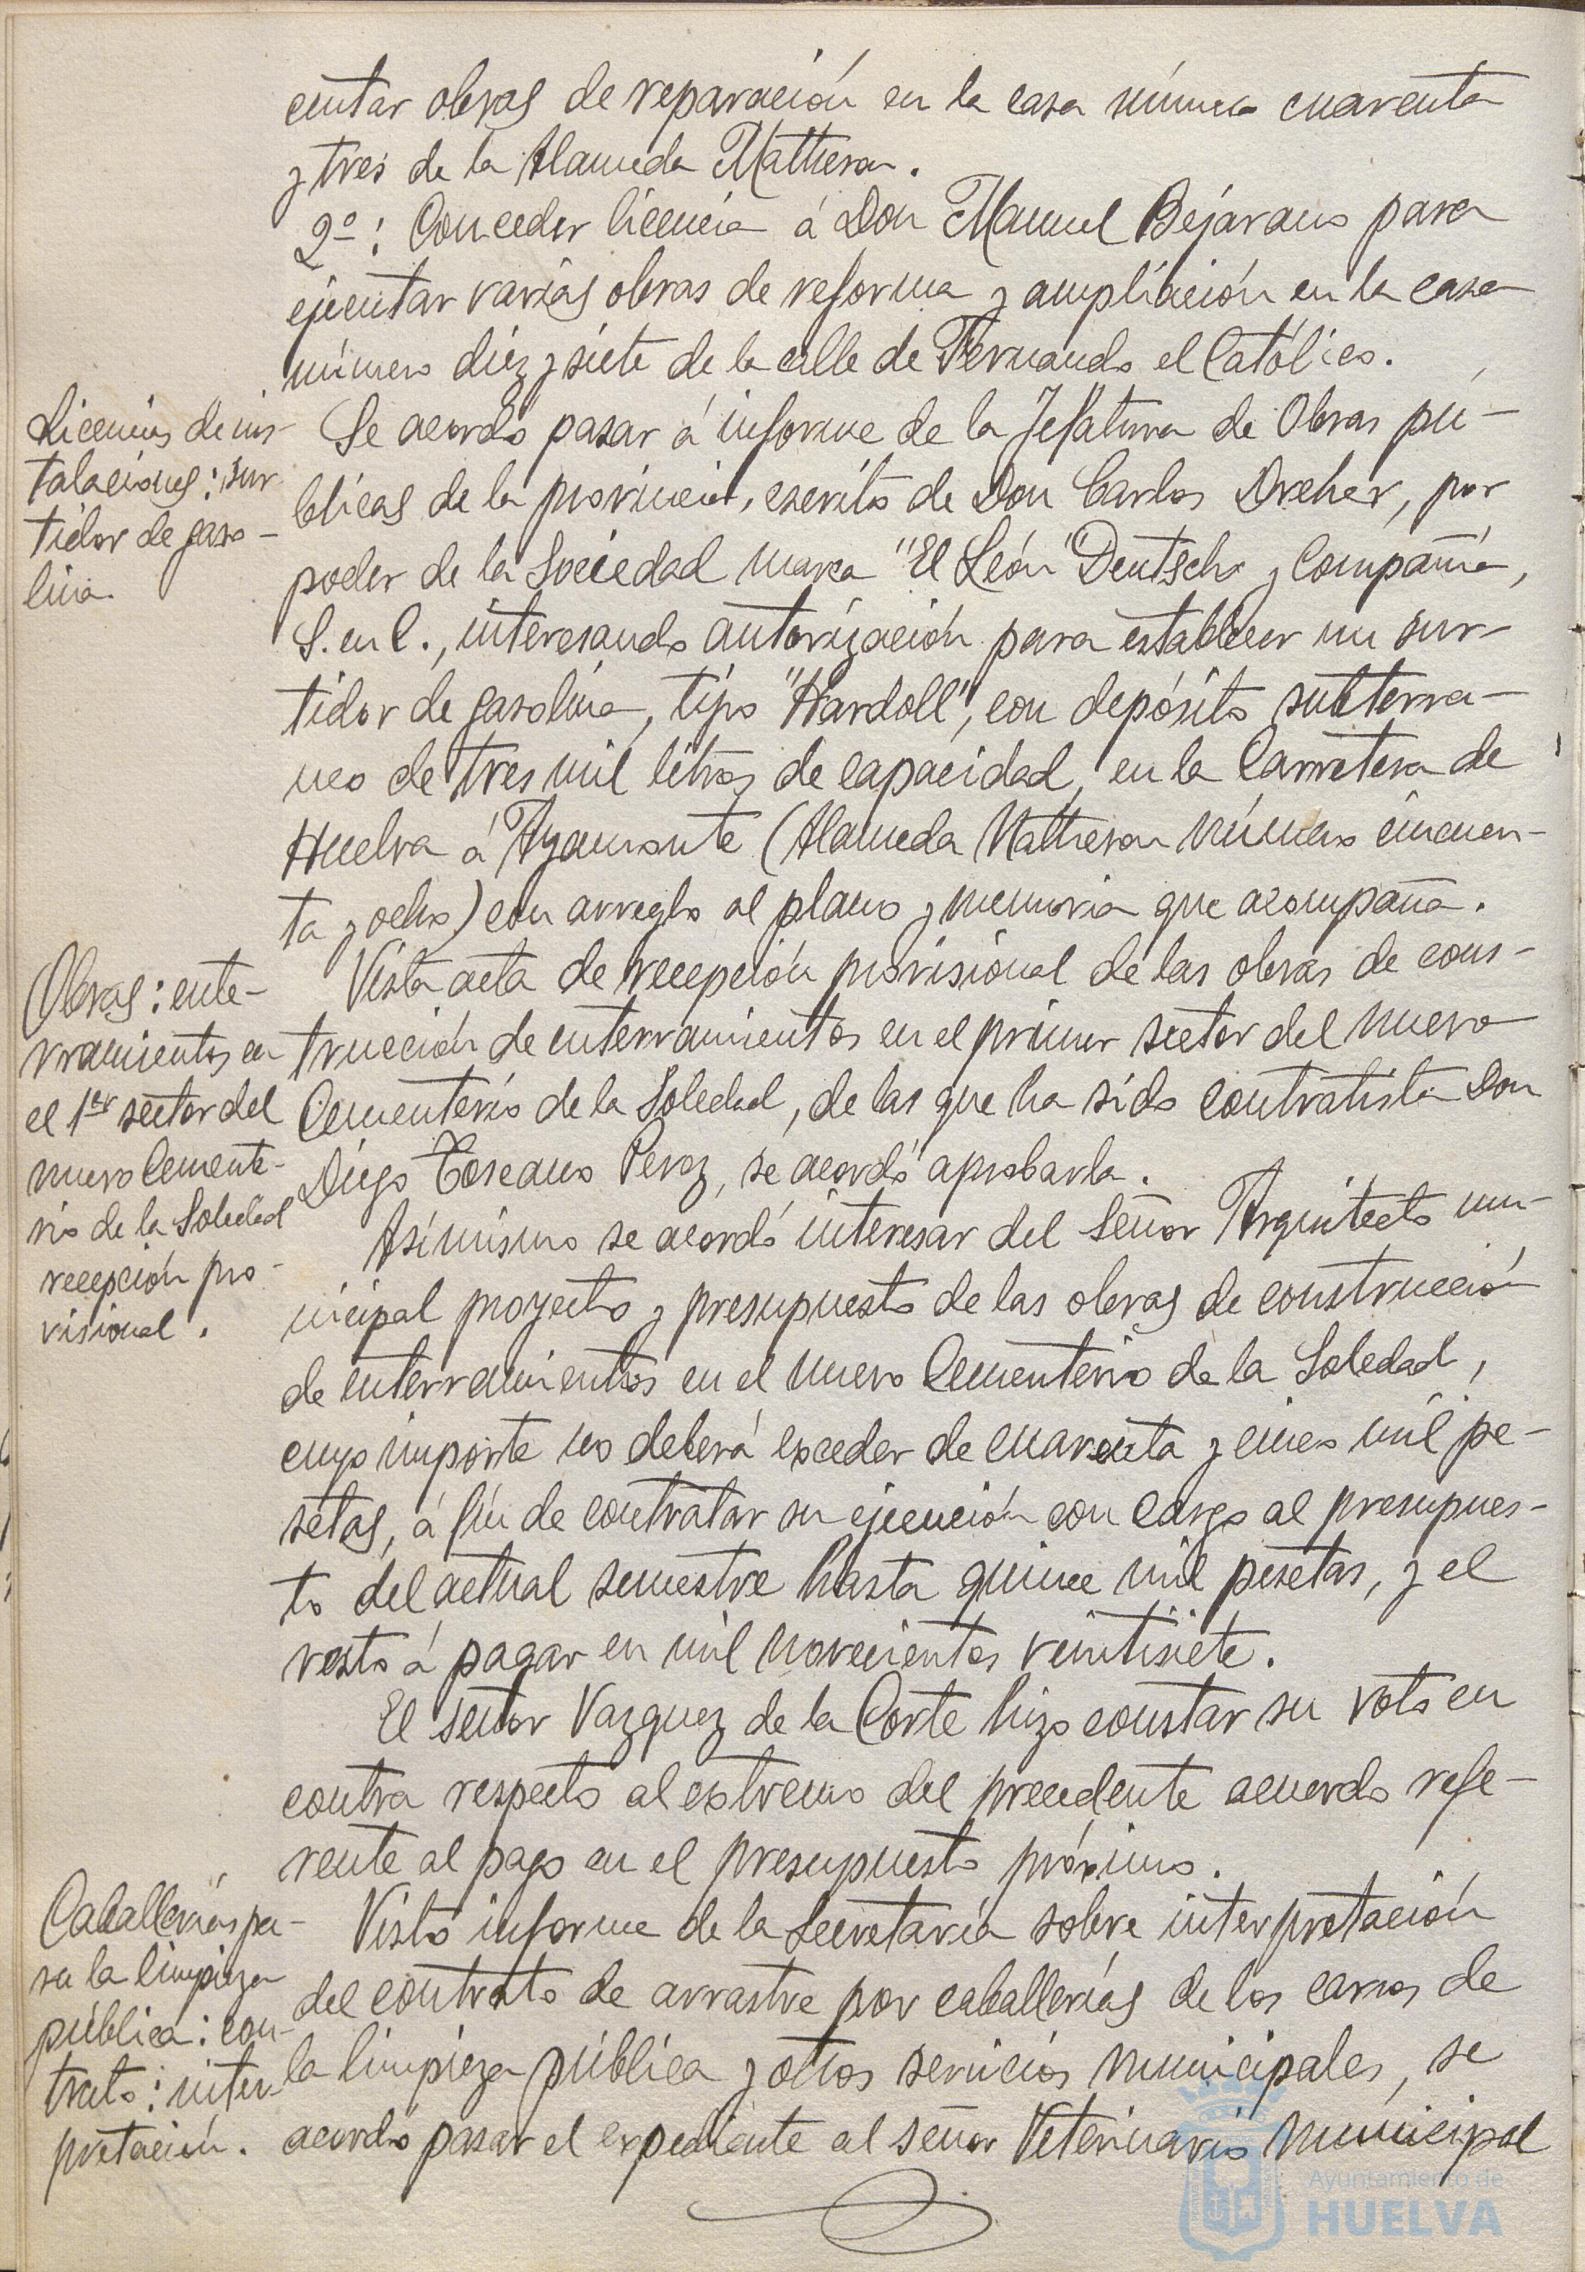 cutar obras de reparación en la casa número cuarenta
y tres de la Alameda Matheson.
2º: Conceder licencia á Don Manuel Bejarano para
ejecutar varias obras de reforma y ampliación en la casa
número diez y siete de la calle de Fernando el Católico.
Licencias de ins-
talaciones: sur-
tidor de gaso-
lina.
Se acordó pasar á informe de la Jefatura de Obras pú-
blicas de la provincia, escrito de Don Carlos Dreher, por
poder de la Sociedad marca "El León" Deutsch y Compañía,
S. en C., interesando autorización para establecer un sur-
tidor de gasolina, tipo "Hardoll", con depósito subterra-
neo de tres mil litros de capacidad, en la Carretera de
Huelva á Ayamonte (Alameda Matheson número cincuen-
ta y ocho) con arreglo al plano y memoria que acompaña.
Obras: ente-
rramientos en
el 1er sector del
nuevo Cemente-
rio de la Soledad
recepción pro-
visional.
Vista acta de recepción provisional de las obras de cons-
trucción de enterramientos en el primer sector del nuevo
Cementerio de la Soledad, de las que ha sido contratista Don
Diego Toscano Perez, se acordó aprobarla.
Asímismo se acordó interesar del Señor Arquitecto mu-
nicipal proyecto y presupuesto de las obras de construcción
de enterramientos en el nuevo Cementerio de la Soledad,
cuyo importe no deberá exceder de cuarenta y cinco mil pe-
setas, á fín de contratar su ejecución con cargo al presupues-
to del actual semestre hasta quince mil pesetas, y el
resto á pagar en mil novecientos veintisiete.
El señor Vazquez de la Corte hizo constar su voto en
contra respecto al extremo del precedente acuerdo refe-
rente al pago en el presupuesto próximo.
Caballerías pa-
ra la limpieza
pública: con-
trato: inter-
pretación.
Visto informe de la Secretaría sobre interpretación
del contrato de arrastre por caballerías de los carros de
la limpieza pública y otros servicios municipales, se
acordó pasar el expediente al señor Veterinario municipal
Ayuntamiento de
HUELVA